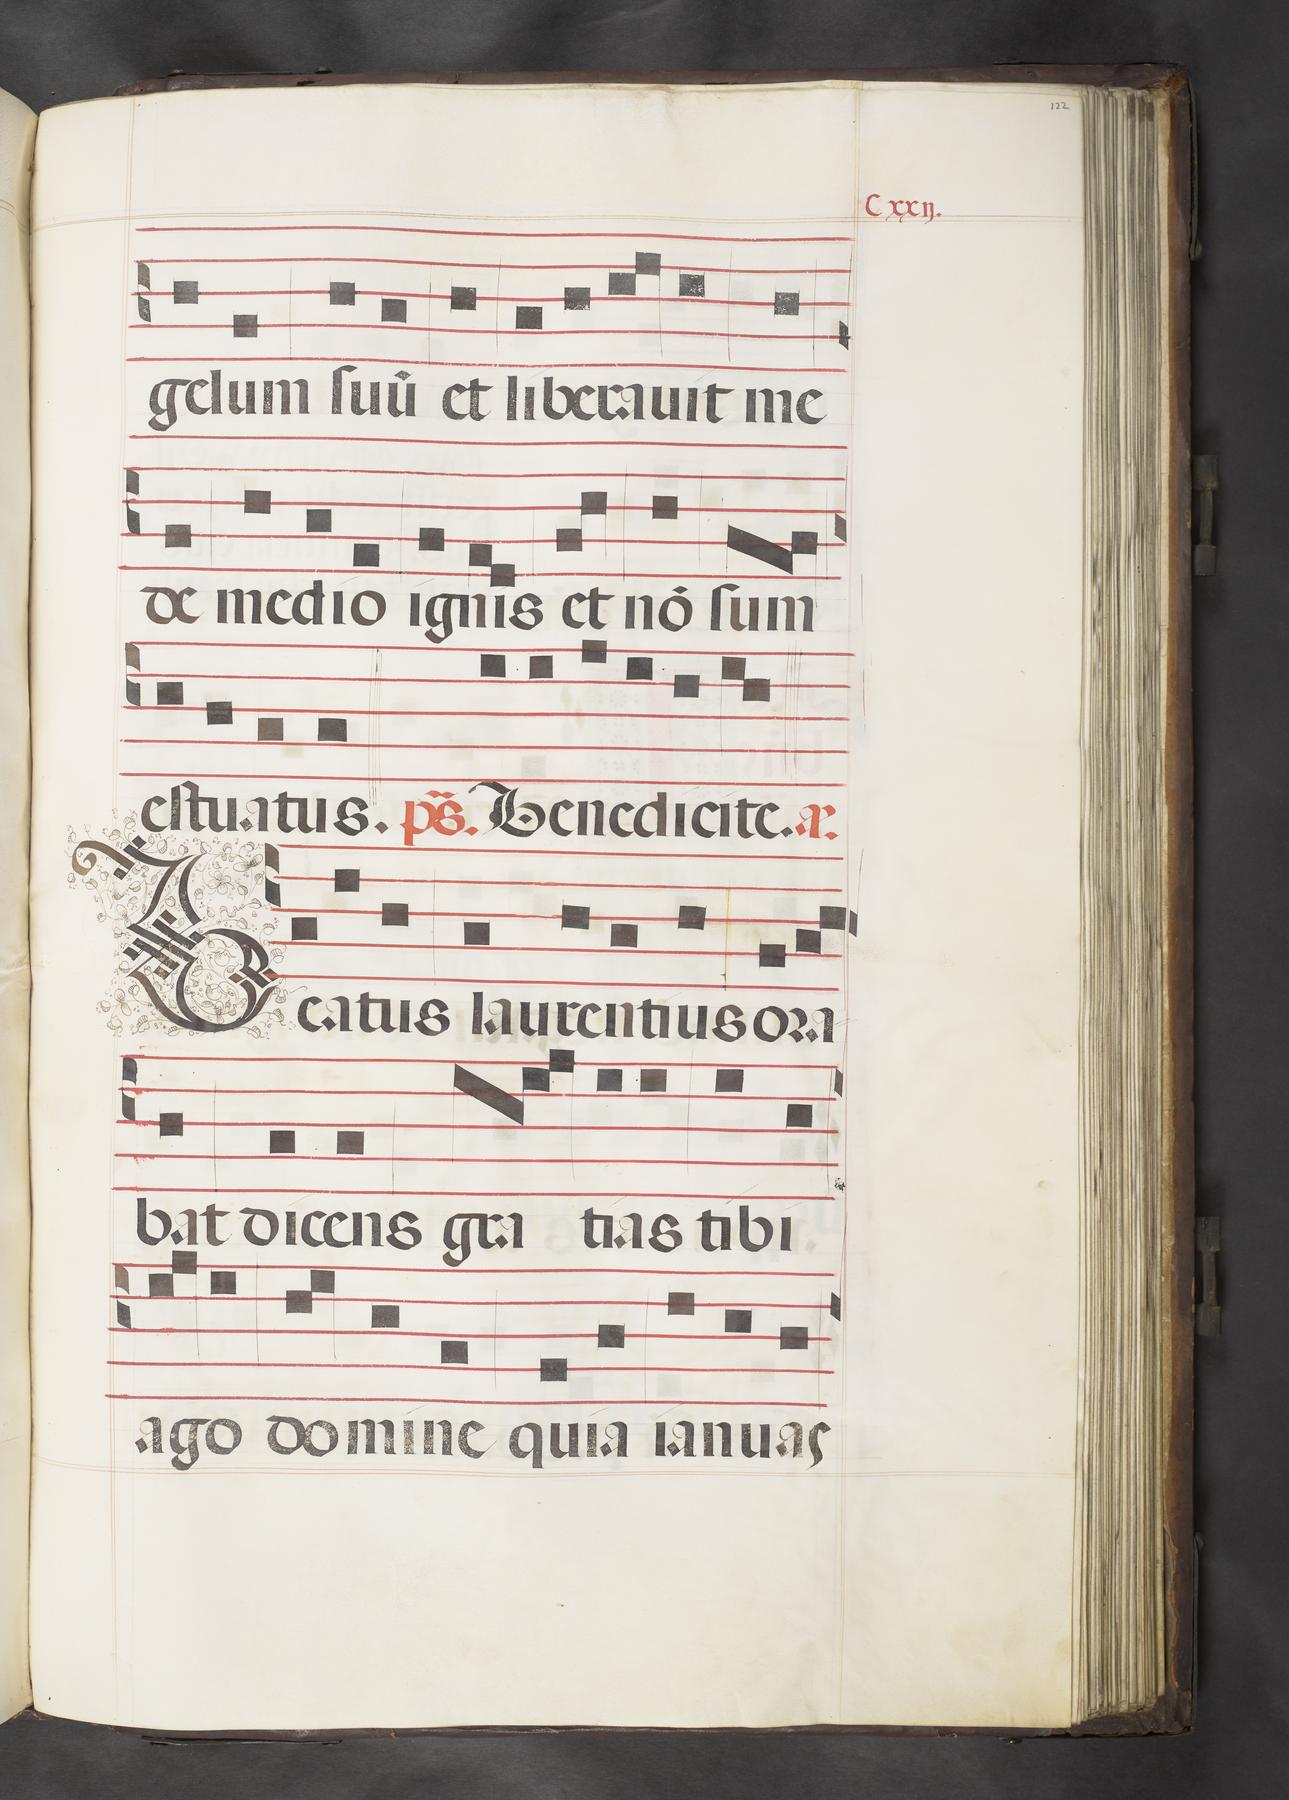 122
C xxij.
gelum suũ et liberauit me
de medio ignis et nõ sum
estuatus. ps̃. Benedicite. a.
Beatus laurentius ora
bat dicens gra tias tibi
ago domine quia ianuas